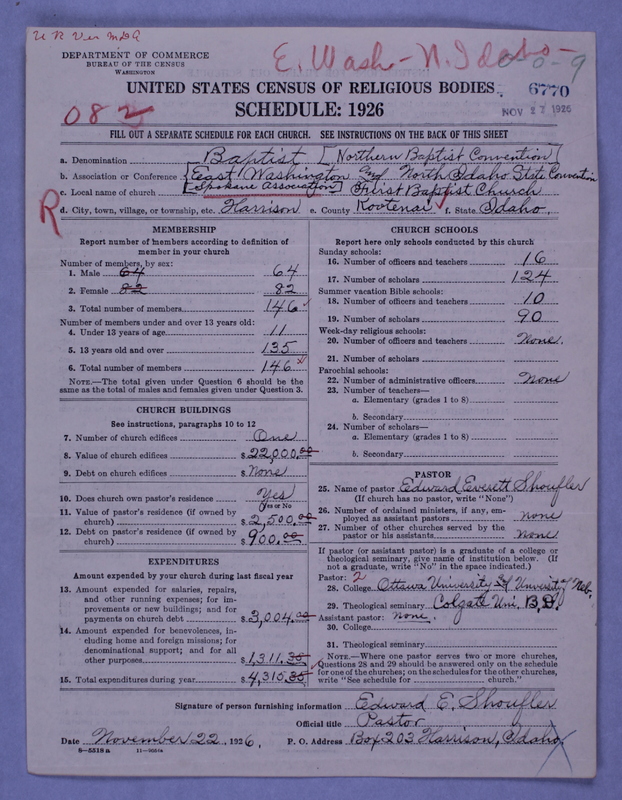 U R Ver MDG
E. Wash - N. Idaho -
0-0-9
DEPARTMENT OF COMMERCE
BUREAU OF THE CENSUS
WASHINGTON
6770
UNITED STATES CENSUS OF RELIGIOUS BODIES
NOV 27 1926
082
SCHEDULE: 1926
FILL OUT A SEPARATE SCHEDULE FOR EACH CHURCH. SEE INSTRUCTIONS ON THE BACK OF THIS SHEET
a. Denomination Baptist [Northern Baptist Convention]
b. Association or Conference [East Washington And North Idaho State Convention
c. Local name of church [Spokane Association] First Baptist Church
R
d. City, town, village, or township, etc. Harrison e. County Kootenai f. State Idaho.
MEMBERSHIP
Report number of members according to definition of member in your church
Number of members, by sex:
1. Male 64 64
2. Female 82 82
3. Total number of members 146
Number of members under and over 13 years old:
4. Under 13 years of age 11
5. 13 years old and over 135
6. Total number of members 146
NOTE.—The total given under Question 6 should be the same as the total of males and females given under Question 3.
CHURCH BUILDINGS
See instructions, paragraphs 10 to 12
7. Number of church edifices One
8. Value of church edifices $22,000.00
9. Debt on church edifices $None
10. Does church own pastor's residence yes
Yes or No
11. Value of pastor's residence (if owned by church) $2,500.00
12. Debt on pastor's residence (if owned by church) $900.00
EXPENDITURES
Amount expended by your church during last fiscal year
13. Amount expended for salaries, repairs, and other running expenses; for improvements or new buildings; and for payments on church debt $3,004.00
14. Amount expended for benevolences, including home and foreign missions; for denominational support; and for all other purposes $1,311.35
15. Total expenditures during year $4,315.35
CHURCH SCHOOLS
Report here only schools conducted by this church
Sunday schools:
16. Number of officers and teachers 16
17. Number of scholars 124
Summer vacation Bible schools:
18. Number of officers and teachers 10
19. Number of scholars 90
Week-day religious schools:
20. Number of officers and teachers None.
21. Number of scholars
Parochial schools:
22. Number of administrative officers None
23. Number of teachers—
a. Elementary (grades 1 to 8)
b. Secondary
24. Number of scholars—
a. Elementary (grades 1 to 8)
b. Secondary
PASTOR
25. Name of pastor Edward Everett Shoufler
(If church has no pastor, write "None")
26. Number of ordained ministers, if any, employed as assistant pastors none
27. Number of other churches served by the pastor or his assistants none
If pastor (or assistant pastor) is a graduate of a college or theological seminary, give name of institution below. (If not a graduate, write "No" in the space indicated.)
Pastor: 2
28. College Ottawa University & University of Neb.
29. Theological seminary Colgate Uni. B,D,
Assistant pastor: none.
30. College
31. Theological seminary
NOTE.—Where one pastor serves two or more churches, Questions 28 and 29 should be answered only on the schedule for one of the churches; on the schedules for the other churches, write "See schedule for church."
Signature of person furnishing information Edward E. Shoufler
Official title Pastor
Date November 22, 1926. P. O. Address Box 203 Harrison, Idaho.
8—5318 a